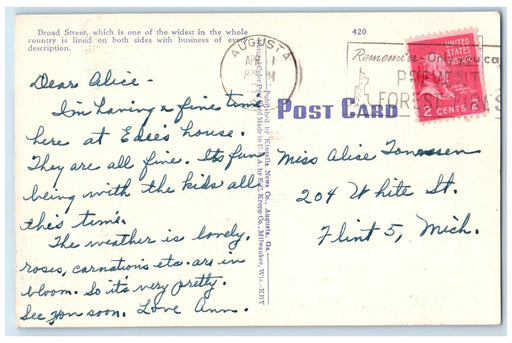 Broad Street, which is one of the widest in the whole
country is lined on both sides with business of every
description.
420
AUGUSTA
APR
Remember - Only you can
PREVENT
FOREST FIRES
UNITED
STATES
POSTAGE
2 CENTS 2
POST CARD
Published by Kingsella News Co., Augusta, Ga.
Made in U.S.A. by E. C. Kropp Co., Milwaukee, Wis.-KBY
Dear Alice -
I'm having a fine time
here at Edie's house.
They are all fine. Its fun
being with the kids all
this time.
The weather is lovely.
roses, carnations etc. are in
bloom. So it's very pretty.
See you soon. Love Ann.
Miss Alice
204 White St.
Flint 5, Mich.